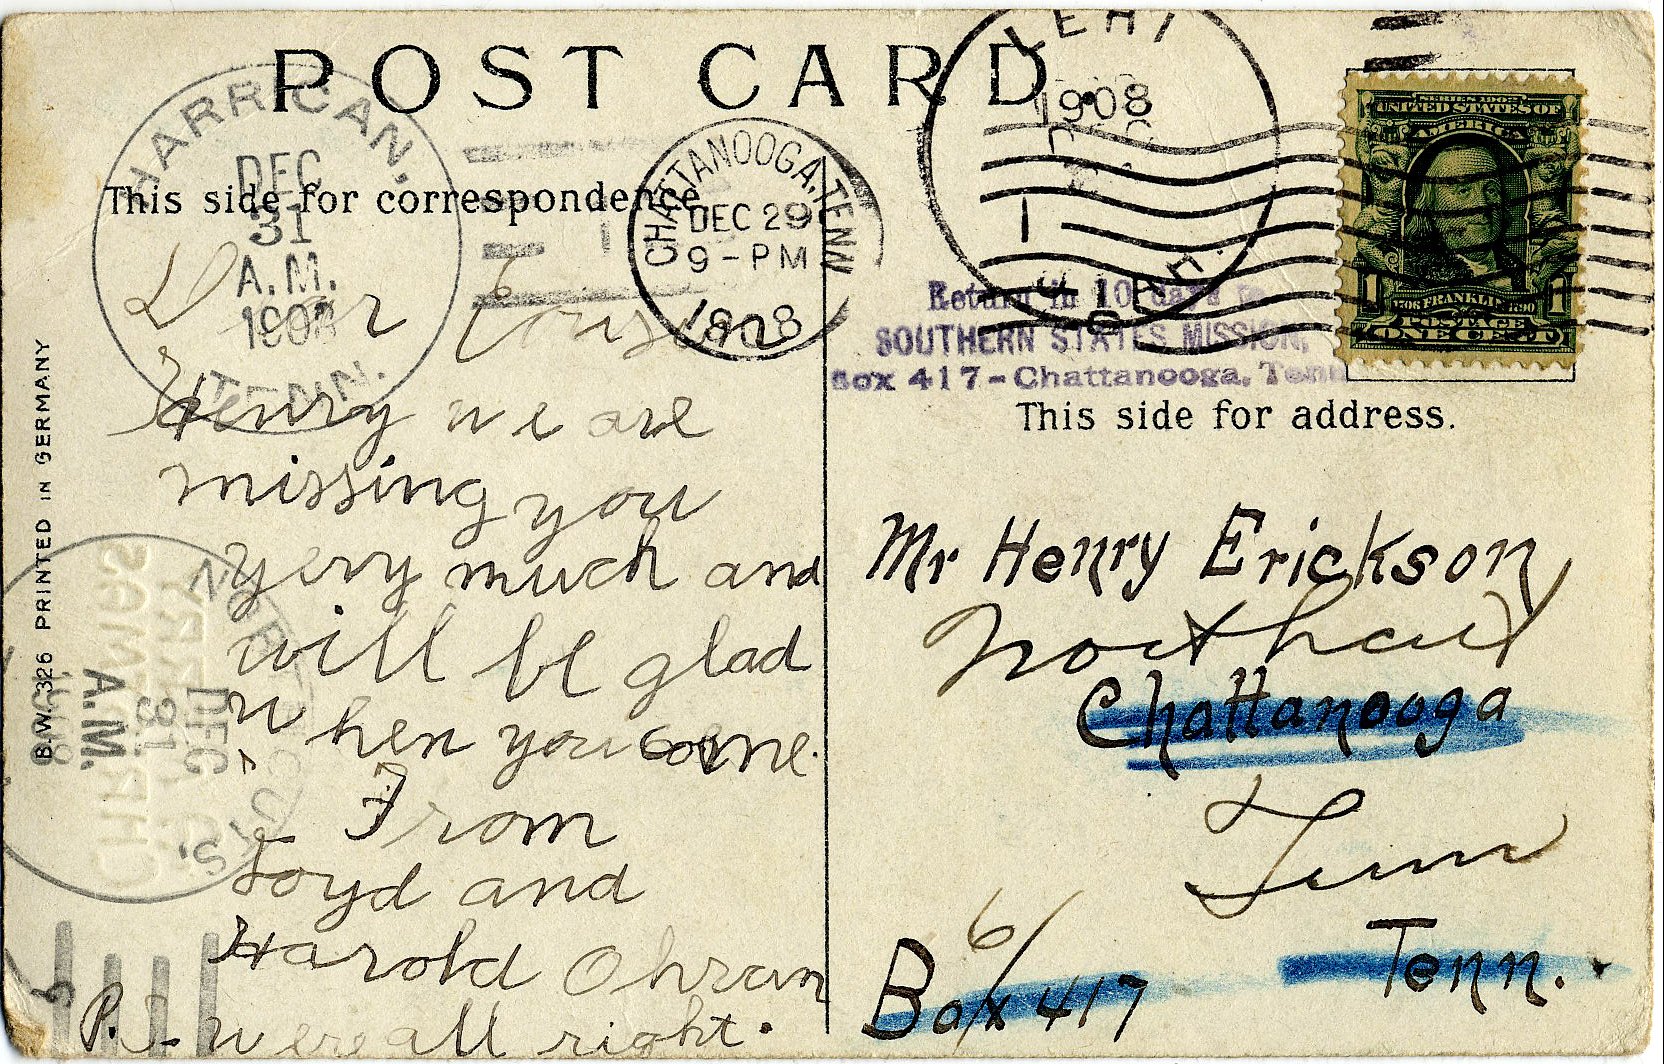 POST CARD.
HARRICAN.
DEC
31
A.M.
1908
TENN.
CHATTANOOGA, TENN
DEC 29
9-PM
1908
LEHI
1908
DEC
1
SERIES 1902
UNITED STATES OF
AMERICA
1706 FRANKLIN 1790
1 1
POSTAGE
ONE CENT
This side for correspondence
Return in 10 days to
SOUTHERN STATES MISSION,
Box 417-Chattanooga, Tenn
This side for address.
Dear Cousin
Henry we are
missing you
very much and
will be glad
when you come.
From
Loyd and
Harold Ohran
P.S. We're all right.
Mr Henry Erickson
Northcut
Chattanooga
Tenn
Tenn.
Box 417
B.W. 326 PRINTED IN GERMANY
DEC
31
A.M.